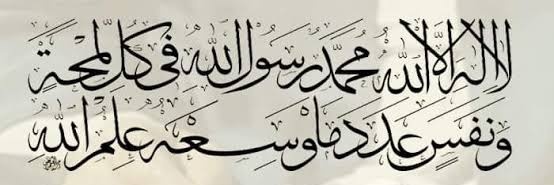 لَا إِلٰهَ إِلَّا اللهُ مُحَمَّدٌ رَسُولُ اللهِ فِي كُلِّ لَمْحَةٍ
وَنَفَسٍ عَدَدَ مَا وَسِعَهُ عِلْمُ اللهِ